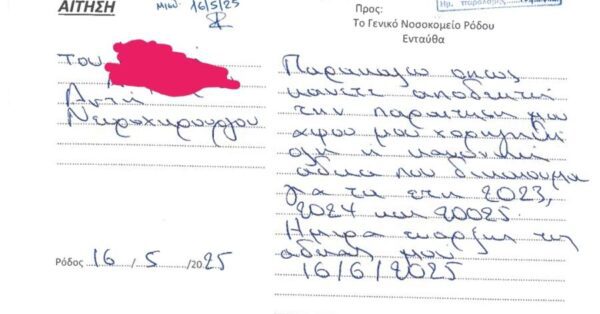 ΑΙΤΗΣΗ
16/5/25
Του
Δντή
Νευροχειρουργου
Ρόδος 16 / 5 /2025
Ημ. παραλαβής
Προς:
Το Γενικό Νοσοκομείο Ρόδου
Ενταύθα
Παρακαλω οπως
κανετε αποδεκτη
την παραιτηση μου
αφου μου χορηγηθει
ολη η κανονικη
αδεια που δικαιουμαι
για τα ετη 2023,
2024 και 20025.
Ημερα εναρξης της
αδειας μου
16/6/2025